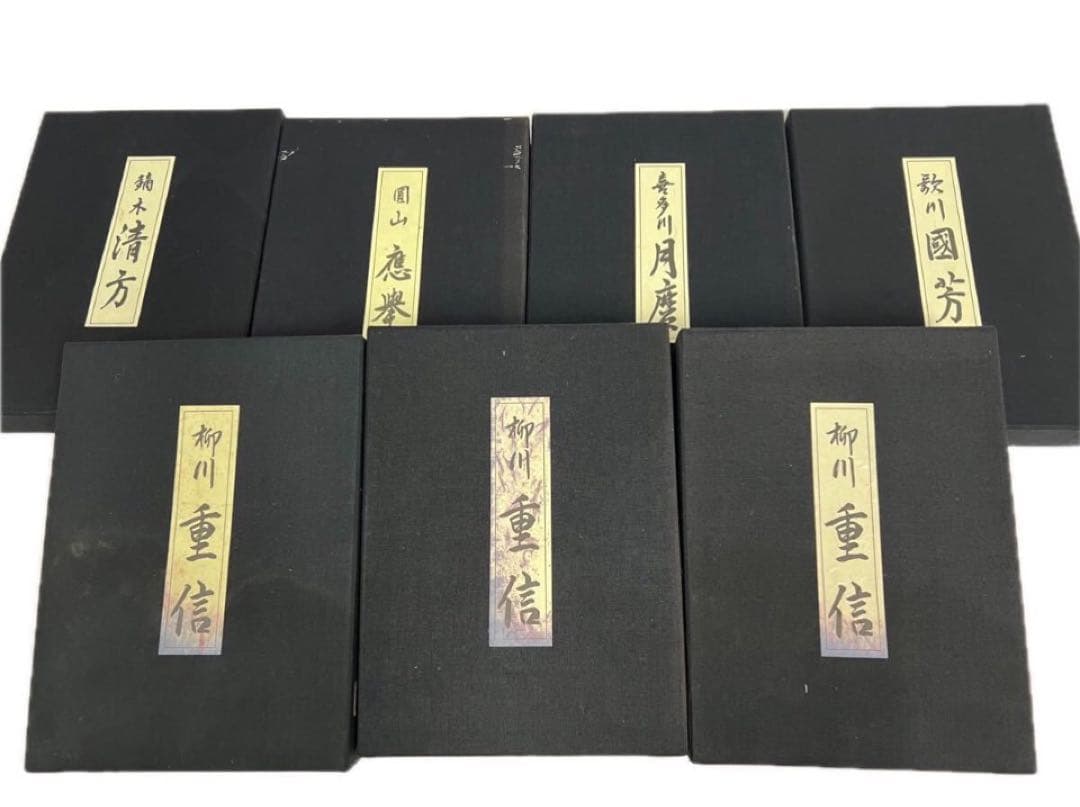 鏑木清方
圓山應擧
喜多川月麿
歌川國芳
柳川重信
柳川重信
柳川重信